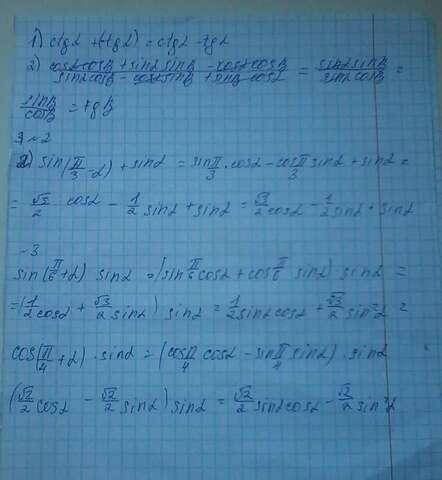 1) ctgα + (-tgα) = ctgα - tgα
2) cosαcosβ + sinαsinβ - cosαcosβ / sinαcosβ - cosαsinβ + sinβ cosα = sinαsinβ / sinαcosβ =
sinβ / cosβ = tgβ
~2
sin(π/3 - α) + sinα = sinπ/3 · cosα - cosπ/3 sinα + sinα =
= √3/2 cosα - 1/2 sinα + sinα = √3/2 cosα - 1/2 sinα + sinα
~3
sin(π/6 + α) sinα = (sinπ/6 cosα + cosπ/6 sinα) sinα =
= (1/2 cosα + √3/2 sinα) sinα = 1/2 sinα cosα + √3/2 sin²α =
cos(π/4 + α) · sinα = (cosπ/4 cosα - sinπ/4 sinα) · sinα
(√2/2 cosα - √2/2 sinα) sinα = √2/2 sinα cosα - √2/2 sin²α